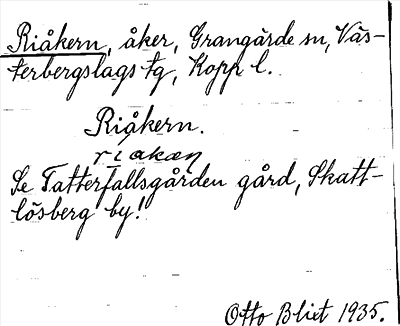 Riåkern, åker, Grangärde sn, Väs-
terbergslags tg, Kopp l.
Riåkern.
Se Tatterfallsgården gård, Skatt-
lösberg by!
Otto Blixt 1935.